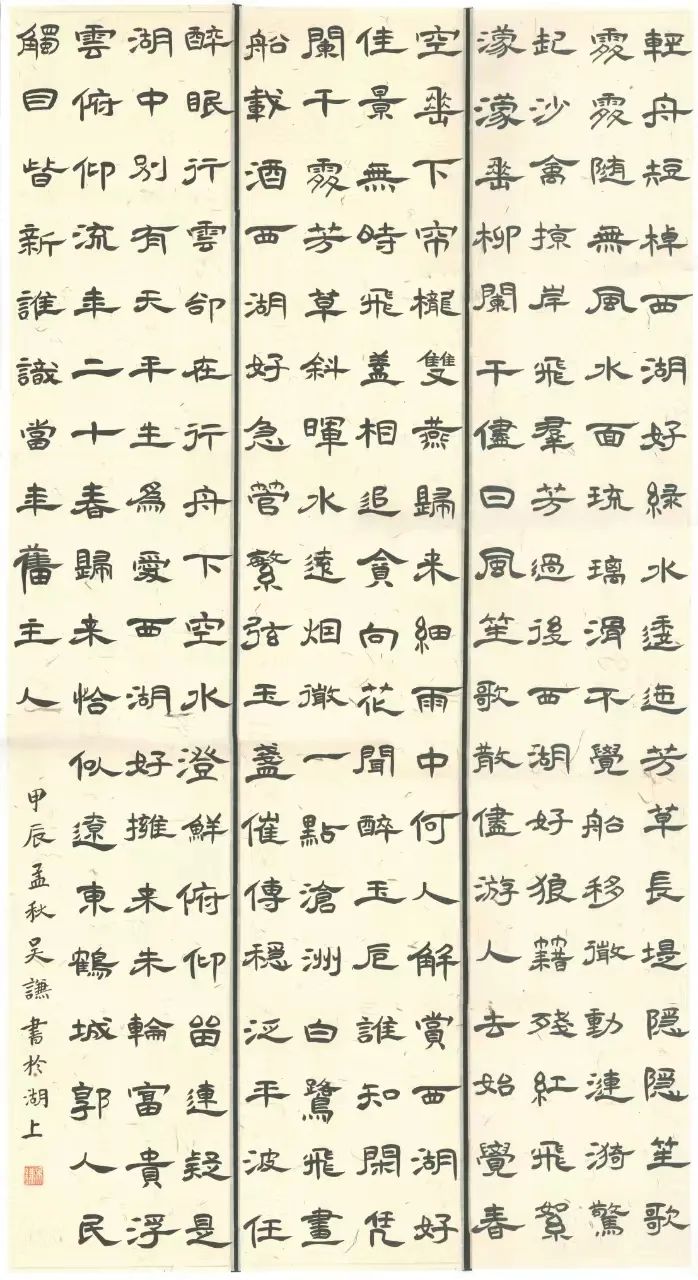 輕舟短棹西湖好緑水逶迤芳草長堤隱隱笙歌
處處随無風水面琉璃滑不覺船移微動漣漪驚
起沙禽掠岸飛羣芳過後西湖好狼籍殘紅飛絮
濛濛垂柳闌干儘日風笙歌散儘游人去始覺春
空垂下帘櫳雙燕歸来細雨中何人解賞西湖好
佳景無時飛蓋相追貪向花聞醉玉卮誰知閑凭
闌干處芳草斜暉水遠烟微一點滄洲白鷺飛畫
船載酒西湖好急管繁弦玉盞催傳穩泛平波任
醉眠行雲卻在行舟下空水澄鮮俯仰留連疑是
湖中別有天平生爲愛西湖好擁来朱輪富貴浮
雲俯仰流年二十春歸来恰似遼東鶴城郭人民
觸目皆新誰識當年舊主人
甲辰孟秋吳謙書於湖上